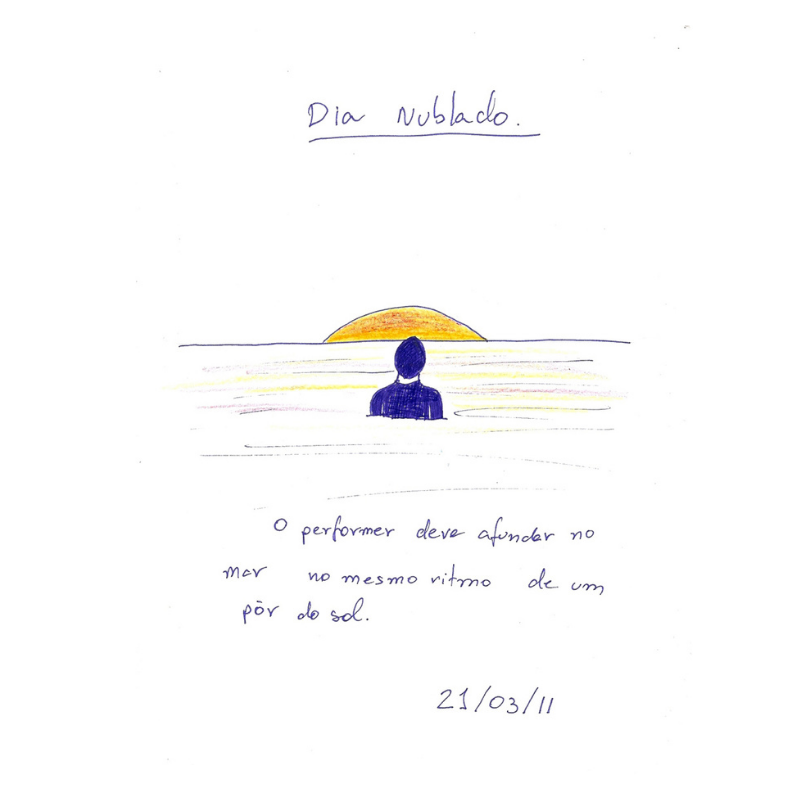 Dia Nublado.
O performer deve afundar no
mar no mesmo ritmo de um
pôr do sol.
21/03/11